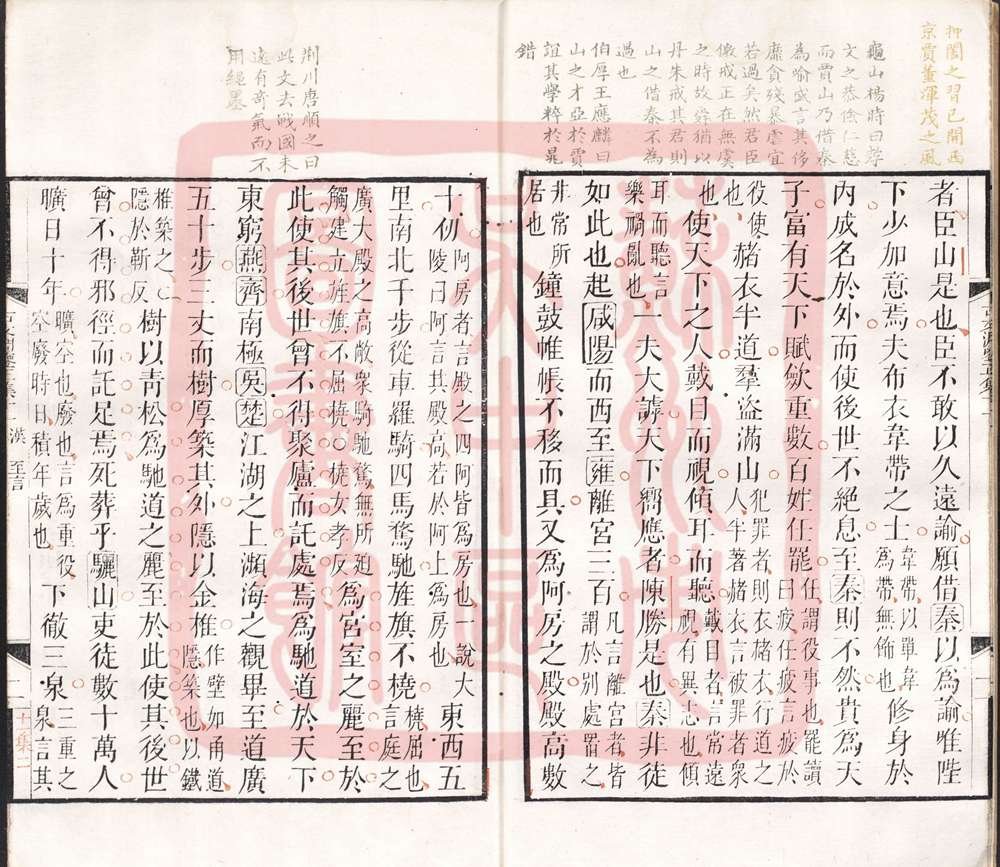 抑闔之習已開西
京賈董渾茂之風
龜山楊時曰孽
文之恭儉仁慈
而賈山乃借秦
為喻盛言其侈
靡貪殘暴虐宜
若過矣然君臣
儆戒正在無虞
之時故舜猶以
丹朱戒其君則
山之借秦不為
過也
伯厚王應麟曰
山之才亞於賈
誼其學粹於晁
錯
者臣山是也臣不敢以久遠諭願借秦以為諭唯陛
下少加意焉夫布衣韋帶之士韋帶以單韋為帶無飾也修身於
內成名於外而使後世不絕息至秦則不然貴為天
子富有天下賦歛重數百姓任罷任謂役事也罷讀曰疲任疲言疲於
役使也赭衣半道羣盜滿山犯罪者則衣赭衣行道之人半著赭衣言被罪者眾
也使天下之人戴目而視傾耳而聽戴目者言常遠視有異志也傾
耳而聽言樂禍亂也一夫大謼天下嚮應者陳勝是也秦非徒
如此也起咸陽而西至雍離宮三百凡言離宮者皆謂於別處置之
非常所居也鐘鼓帷帳不移而具又為阿房之殿殿高數
荆川唐順之曰
此文去戰國未
遠有奇氣而不
用繩墨
十仞阿房者言殿之四阿皆為房也一說大陵曰阿言其殿高若於阿上為房也東西五
里南北千步從車羅騎四馬騖馳旌旗不橈橈屈也言庭之
廣大殿之高敞眾騎馳騖無所迫觸建立旌旗不屈橈○橈女孝反為宮室之麗至於
此使其後世曾不得聚廬而託處焉為馳道於天下
東窮燕齊南極吳楚江湖之上瀕海之觀畢至道廣
五十步三丈而樹厚築其外隱以金椎作壁如甬道隱築也以鐵
椎築之○隱於靳反樹以青松為馳道之麗至於此使其後世
曾不得邪徑而託足焉死葬乎驪山吏徒數十萬人
曠日十年曠空也廢也言為重役空廢時日積年歲也下徹三泉三重之泉言其
漢
至言